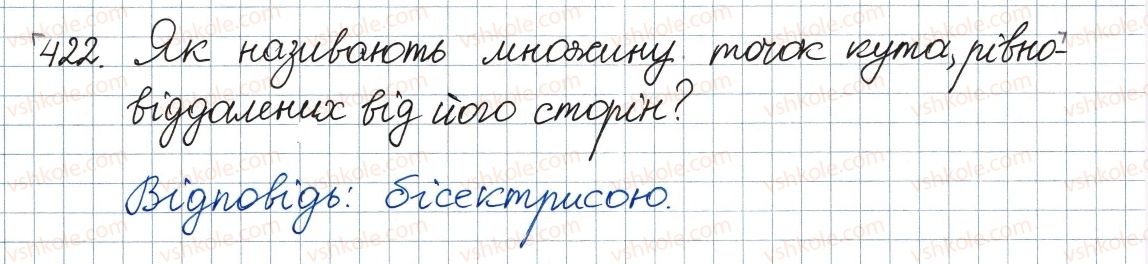 422. Як називають множину точок кута, рівно-
віддалених від його сторін?
Відповідь: бісектрисою.